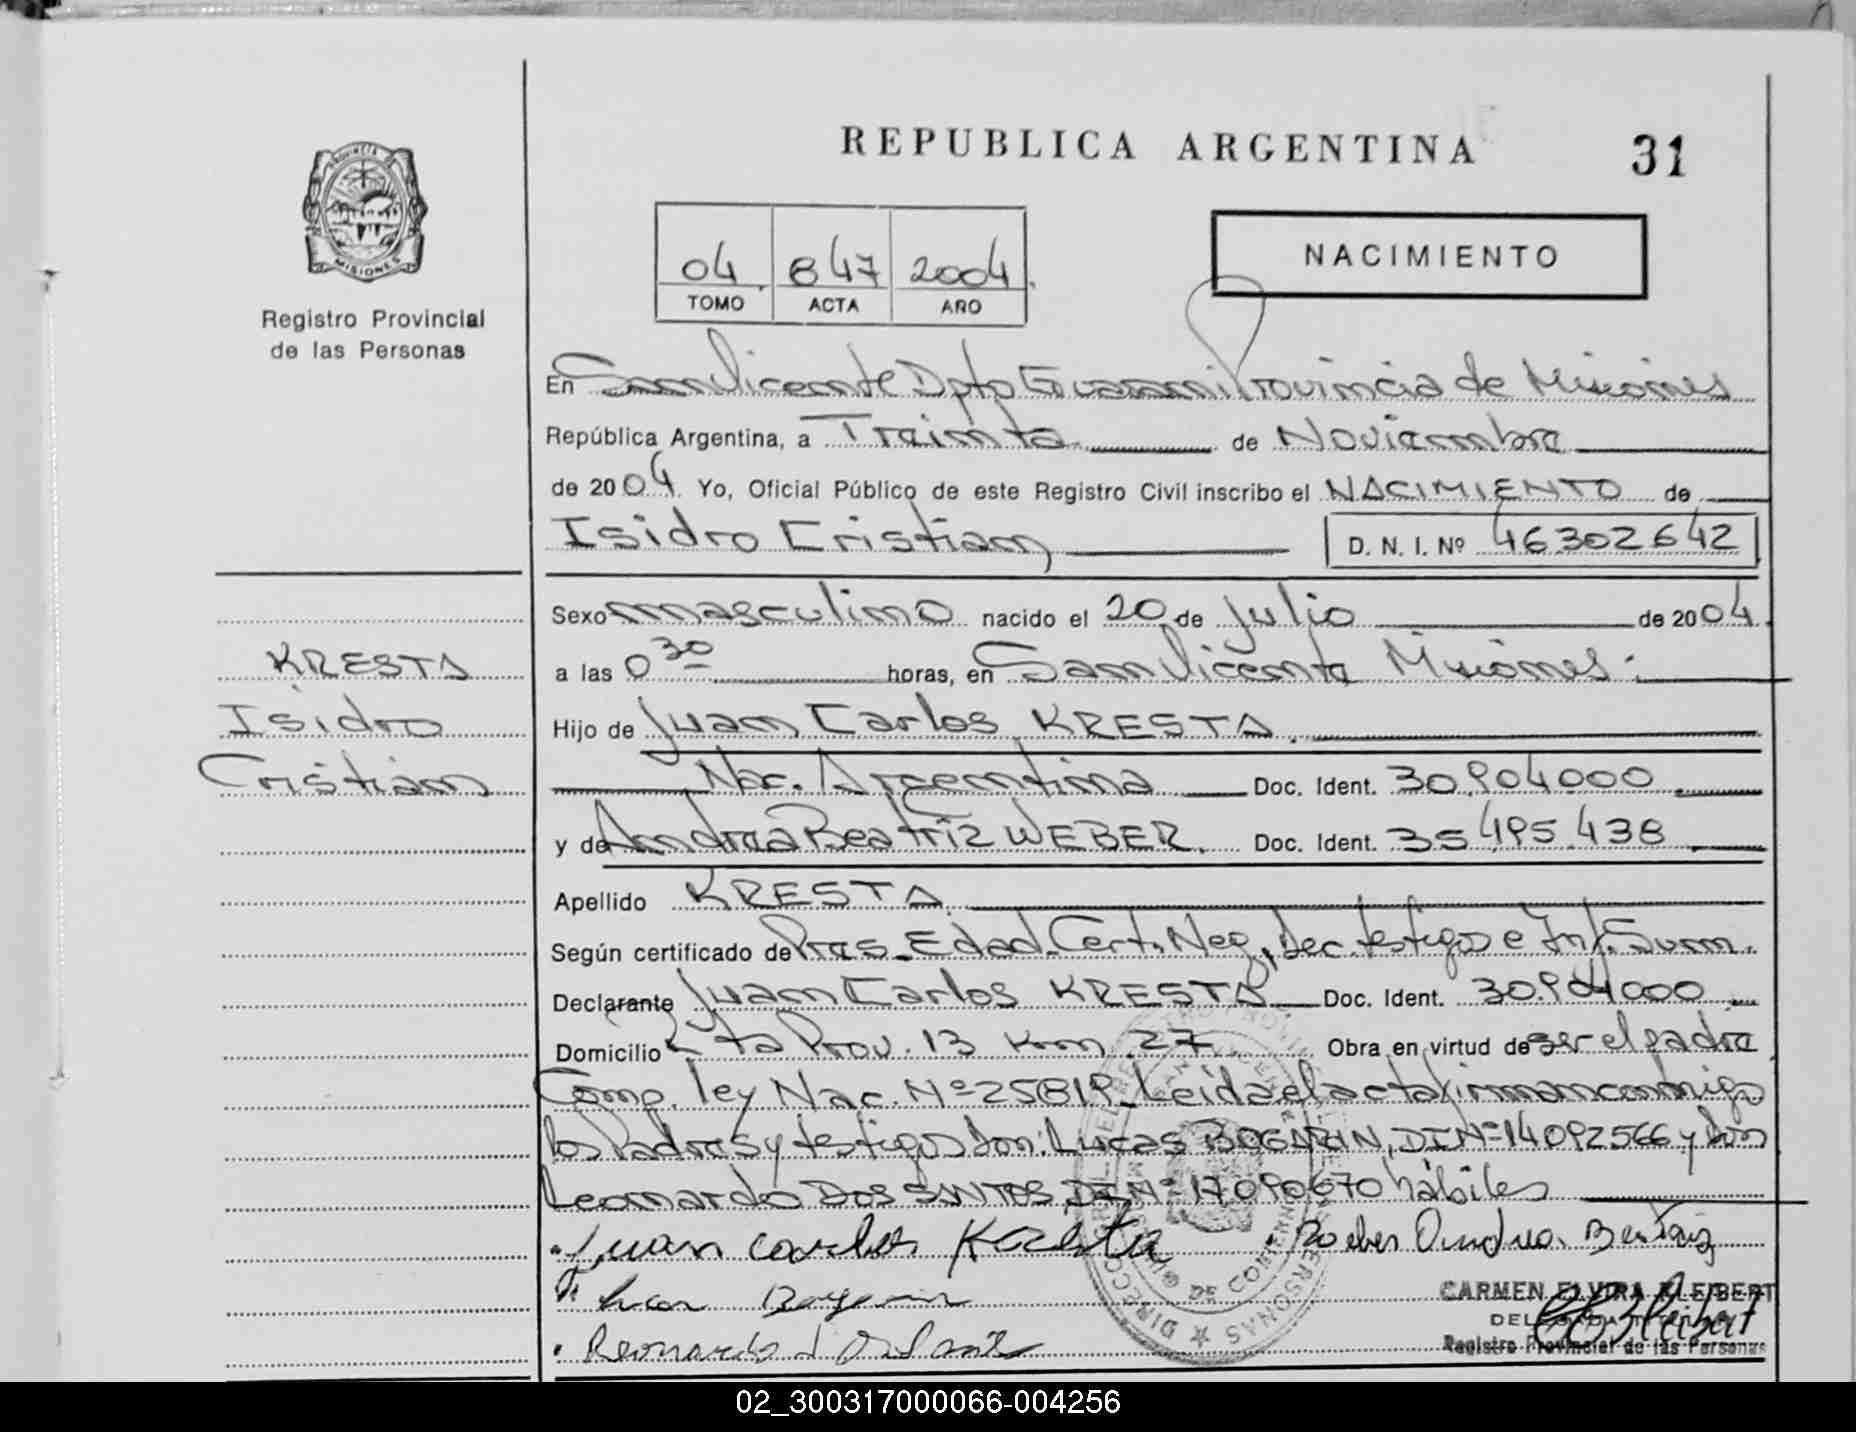 REPUBLICA ARGENTINA
31
PROVINCIA
MISIONES
Registro Provincial
de las Personas
04 847 2004
TOMO ACTA AÑO
NACIMIENTO
En San Vicente Dpto Guarani Provincia de Misiones
República Argentina, a Treinta de Noviembre
de 2004. Yo, Oficial Público de este Registro Civil inscribo el NACIMIENTO de
Isidro Cristian
D. N. I. Nº 46302642
Sexo masculino nacido el 20 de Julio de 2004.
a las 0 30 horas, en San Vicente Misiones.
Hijo de Juan Carlos KRESTA.
Nac. Argentina Doc. Ident. 30.904000
y de Andrea Beatriz WEBER. Doc. Ident. 35.495.438
Apellido KRESTA
Según certificado de Pres. Edad. Cert. Neg, Dec. testigos e Inf. Sum.
Declarante Juan Carlos KRESTA Doc. Ident. 30.904000
Domicilio Rta Prov. 13 Km 27 Obra en virtud de ser el padre
Comp. ley Nac. Nº 25819. Leida el acta firman conmigo
los Padres y testigos Don: Lucas BOGARIN, DI Nº 14092566 y Don
Leonardo DOS SANTOS, DI Nº 17.090670 hábiles
KRESTA
Isidro
Cristian
Juan Carlos Kresta
CARMEN ELVIRA KLEIBERT
Registro Provincial de las Personas
02_300317000066-004256